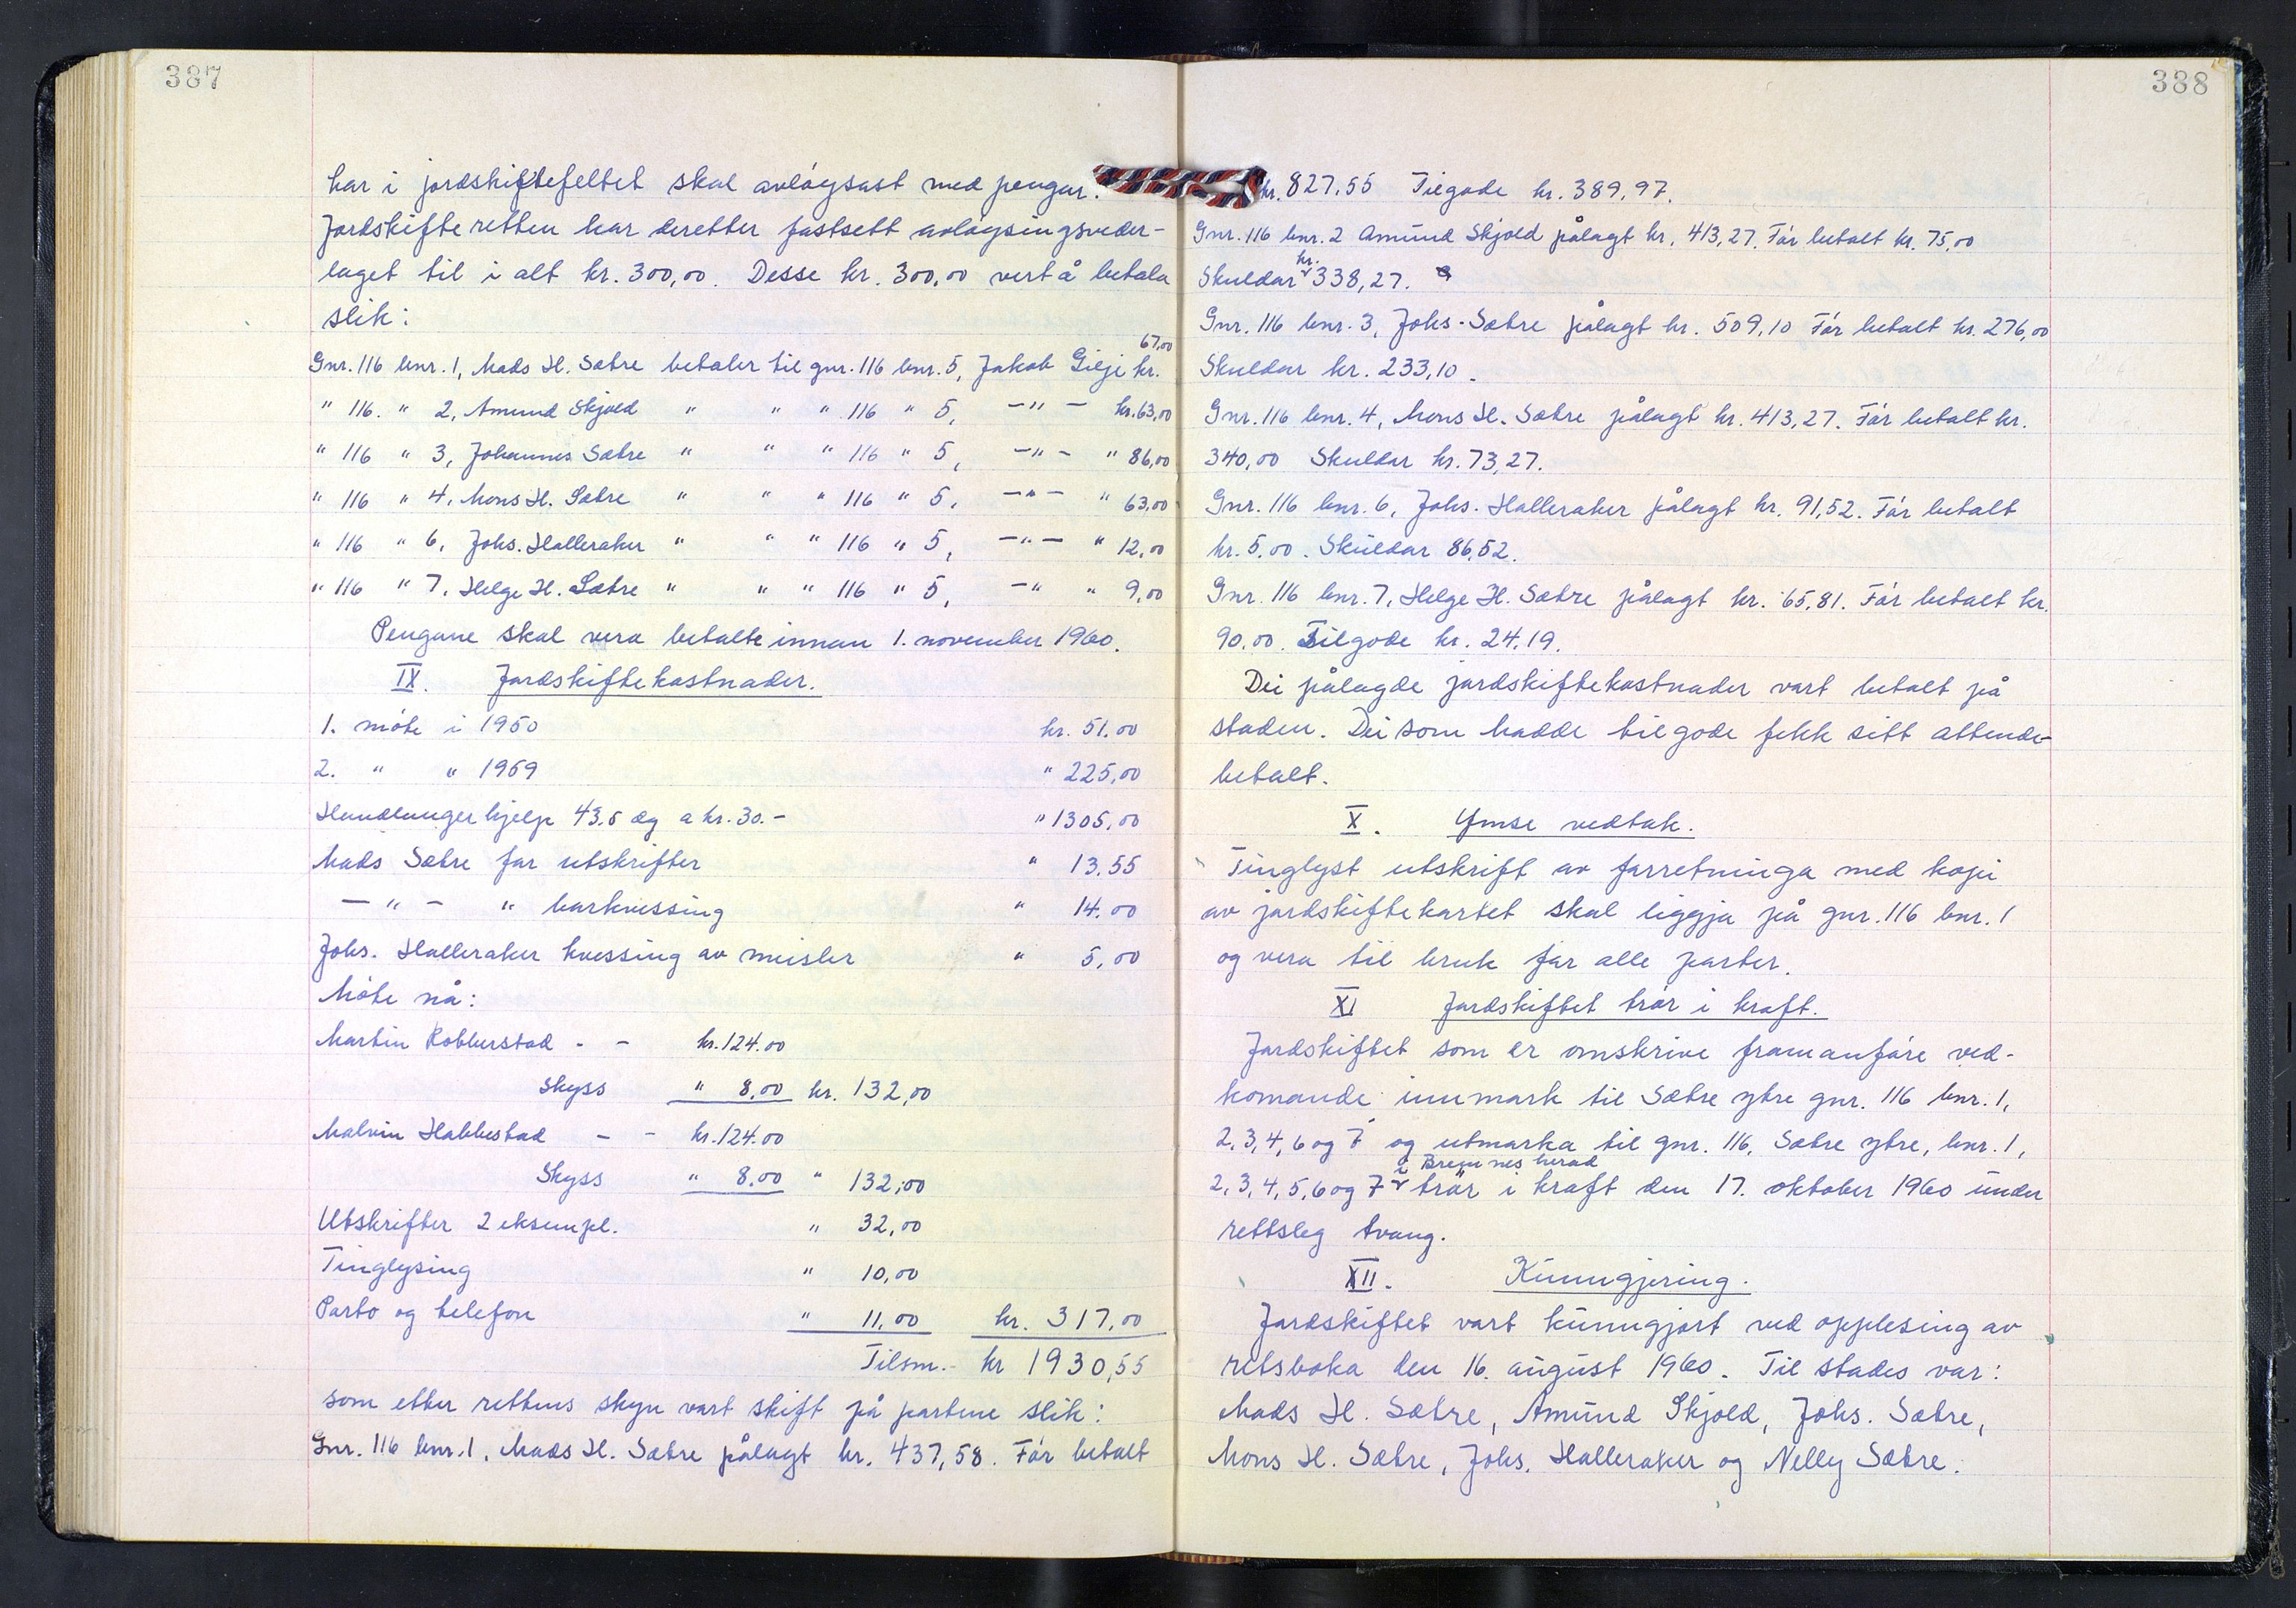 387
har i jordskiftefeltet skal avløysast med pengar.
Jordskifteretten har deretter fastsett avløysingsveder-
laget til i alt kr. 300,00. Desse kr. 300,00 vert å betala
slik:
Gnr. 116 bnr. 1, Mads H. Sæbre betaler til gnr. 116 bnr. 5, Jakob Gilje kr. 67,00
" 116. " 2, Amund Skjold " " " 116 " 5, -"- kr. 63,00
" 116 " 3, Johannes Sæbre " " " 116 " 5, -"- " 86,00
" 116 " 4, Mons H. Sæbre " " " 116 " 5, -"- " 63,00
" 116 " 6, Johs. Halleraker " " " 116 " 5, -"- " 12,00
" 116 " 7, Helge H. Sæbre " " " 116 " 5, -" " 9,00
Pengane skal vera betalte innan 1. november 1960.
IX. Jordskiftekostnader.
1. møte i 1950 kr. 51.00
2. " " 1959 " 225,00
Handlangerhjelp 43,5 dg a kr. 30.- " 1305,00
Mads Sæbre for utskrifter " 13.55
-"- " borkvessing " 14.00
Johs. Halleraker kvessing av meisler " 5,00
Møte nå:
Martin Robberstad - - kr. 124.00
Skyss " 8,00 kr. 132,00
Malvin Habbestad - - kr. 124.00
Skyss " 8.00 " 132,00
Utskrifter 2 eksempl. " 32,00
Tinglysing " 10,00
Porto og telefon " 11.00 kr. 317,00
Tilsm.- kr 1930,55
som etter rettens skyn vart skift på partene slik:
Gnr. 116 bnr. 1. Mads H. Sæbre pålagt kr. 437,58. Før betalt
388
kr. 827,55 Tilgode kr. 389,97.
Gnr. 116 bnr. 2 Amund Skjold pålagt kr. 413,27. Før betalt kr. 75,00
Skuldar kr. 338,27.
Gnr. 116 bnr. 3, Johs. Sæbre pålagt kr. 509,10 Før betalt kr. 276,00
Skuldar kr. 233,10.
Gnr. 116 bnr. 4, Mons H. Sæbre pålagt kr. 413,27. Før betalt kr.
340,00 Skuldar kr. 73,27.
Gnr. 116 bnr. 6, Johs. Halleraker pålagt kr. 91,52. Før betalt
kr. 5,00. Skuldar 86,52.
Gnr. 116 bnr. 7, Helge H. Sæbre pålagt kr. 65,81. Før betalt kr.
90,00. Tilgode kr. 24,19.
Dei pålagde jordskiftekostnader vart betalt på
staden. Dei som hadde tilgode fekk sitt attende-
betalt.
X. Ymse vedtak.
Tinglyst utskrift av forretninga med kopi
av jordskiftekartet skal liggja på gnr. 116 bnr. 1
og vera til bruk for alle parter.
XI Jordskiftet trør i kraft.
Jordskiftet som er omskrive framanføre ved-
komande innmark til Sæbre ytre gnr. 116 bnr. 1,
2, 3, 4, 6 og 7 og utmarka til gnr. 116, Sæbre ytre, bnr. 1,
2, 3, 4, 5, 6 og 7 i Bremnes herad trør i kraft den 17. oktober 1960 under
rettsleg tvang.
XII. Kunngjering.
Jordskiftet vart kunngjort ved opplesing av
retsboka den 16. august 1960. Til stades var:
Mads H. Sæbre, Amund Skjold, Johs. Sæbre,
Mons H. Sæbre, Johs. Halleraker og Nelly Sæbre.